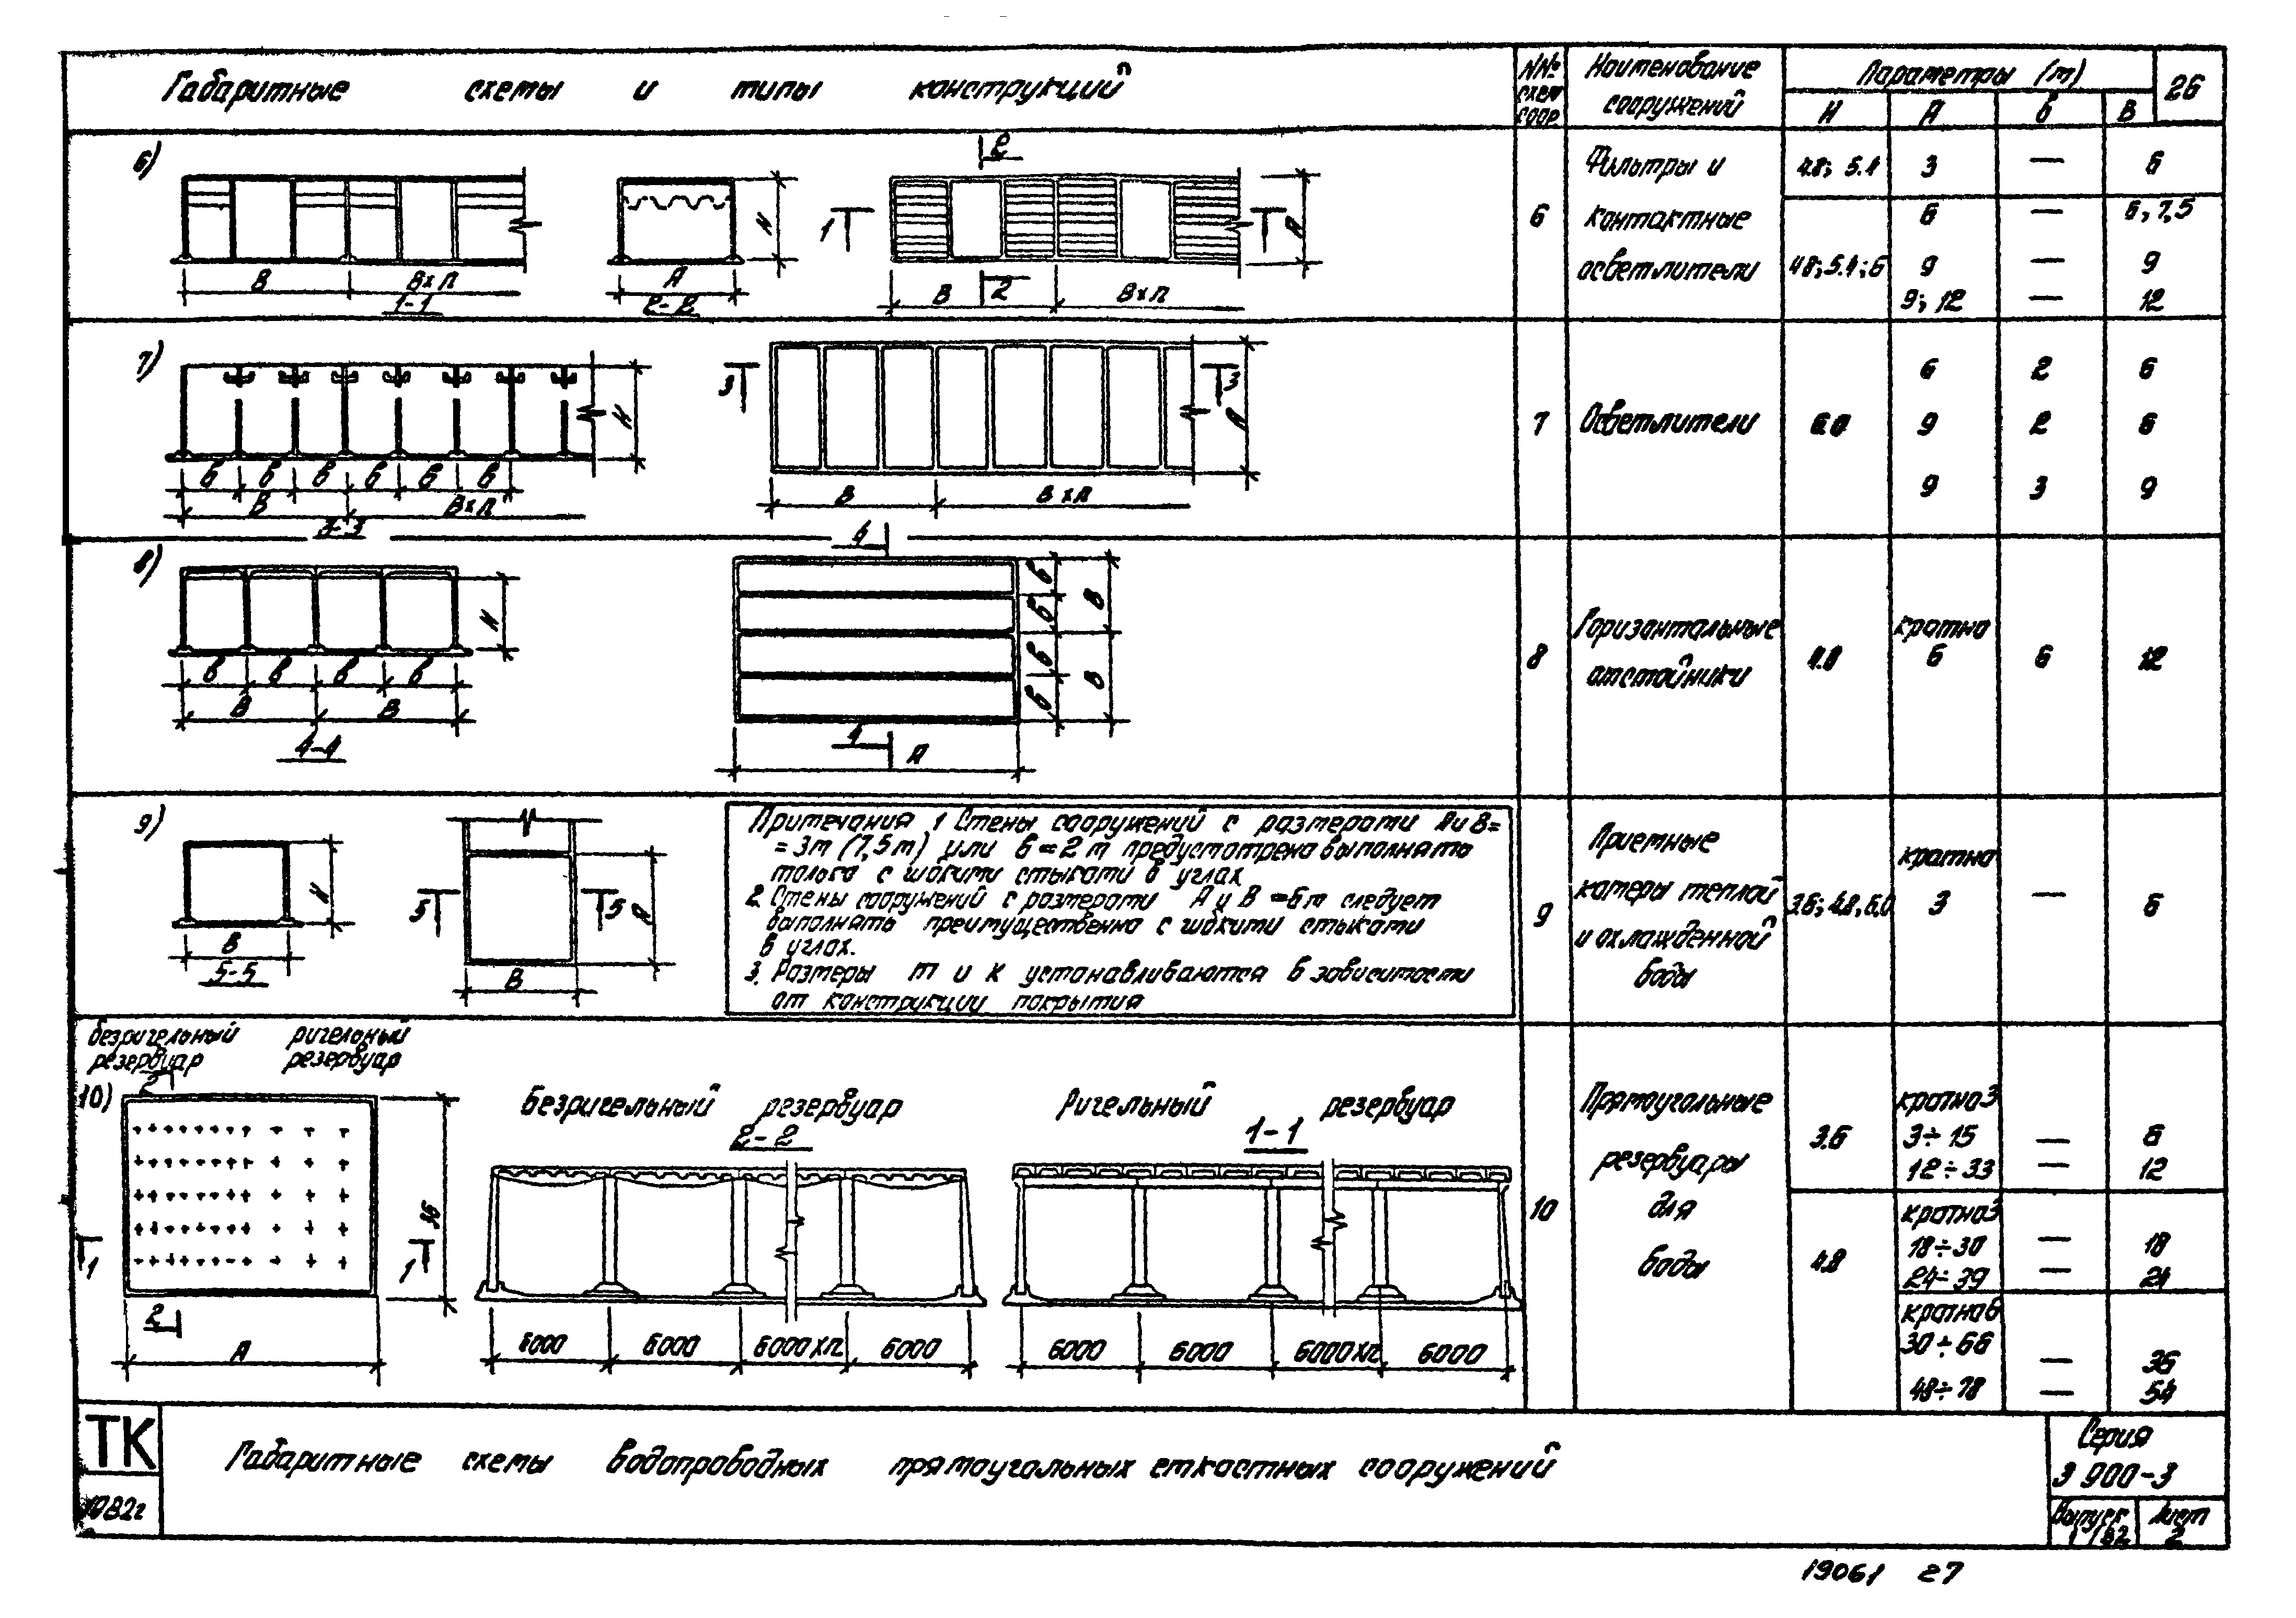 Габаритные схемы и типы конструкций
NN№ схем соор.
Наименование сооружений
Параметры (м)
26
Н А б В
6)
В В×п
1-1
А
Н
2-2
2
1
А
В 2 В×п
6
Фильтры и
контактные
осветлители
4.8; 5.4 3 — 6
6 — 6, 7,5
4.8; 5.4; 6 9 — 9
9; 12 — 12
7)
Н
б б б б б б
В В×п
3-3
3 3
А
В В×п
7 Осветлители 6.0
6 2 6
9 2 6
9 3 9
8)
Н
б б б б
В В
4-4
4
б б б б
В В
4
А
8
Горизантальные
отстойники
4.8
кратно
6
6 12
9)
Н
В
5-5
5 5
А
В
Примечания 1 Стены сооружений с размерами А и В=
= 3м (7,5 м) или б = 2 м предусмотрено выполнять
только с гибкими стыками в углах
2. Стены сооружений с размерами А и В = 6 м следует
выполнять преимущественно с гибкими стыками
в углах.
3. Размеры т и к устанавливаются в зависимости
от конструкции покрытия
9
Приемные
камеры теплой
и охлажденной
воды
3.6; 4.8, 6.0
кратно
3
— 6
безригельный резервуар
ригельный резервуар
10)
2
36
1 1
2
А
Безригельный резервуар
2-2
6000 6000 6000×п 6000
Ригельный резервуар
1-1
6000 6000 6000×п 6000
10
Прямоугольные
резервуары
для
воды
3.6
кратно 3
3÷15 — 6
12÷33 — 12
4.8
кратно 3
18÷30 — 18
24÷39 — 24
кратно 6
30÷66 — 36
48÷78 — 54
ТК
1982г
Габаритные схемы водопроводных прямоугольных емкостных сооружений
Серия
3 900-3
Выпуск
1/82
Лист
2
19061 27